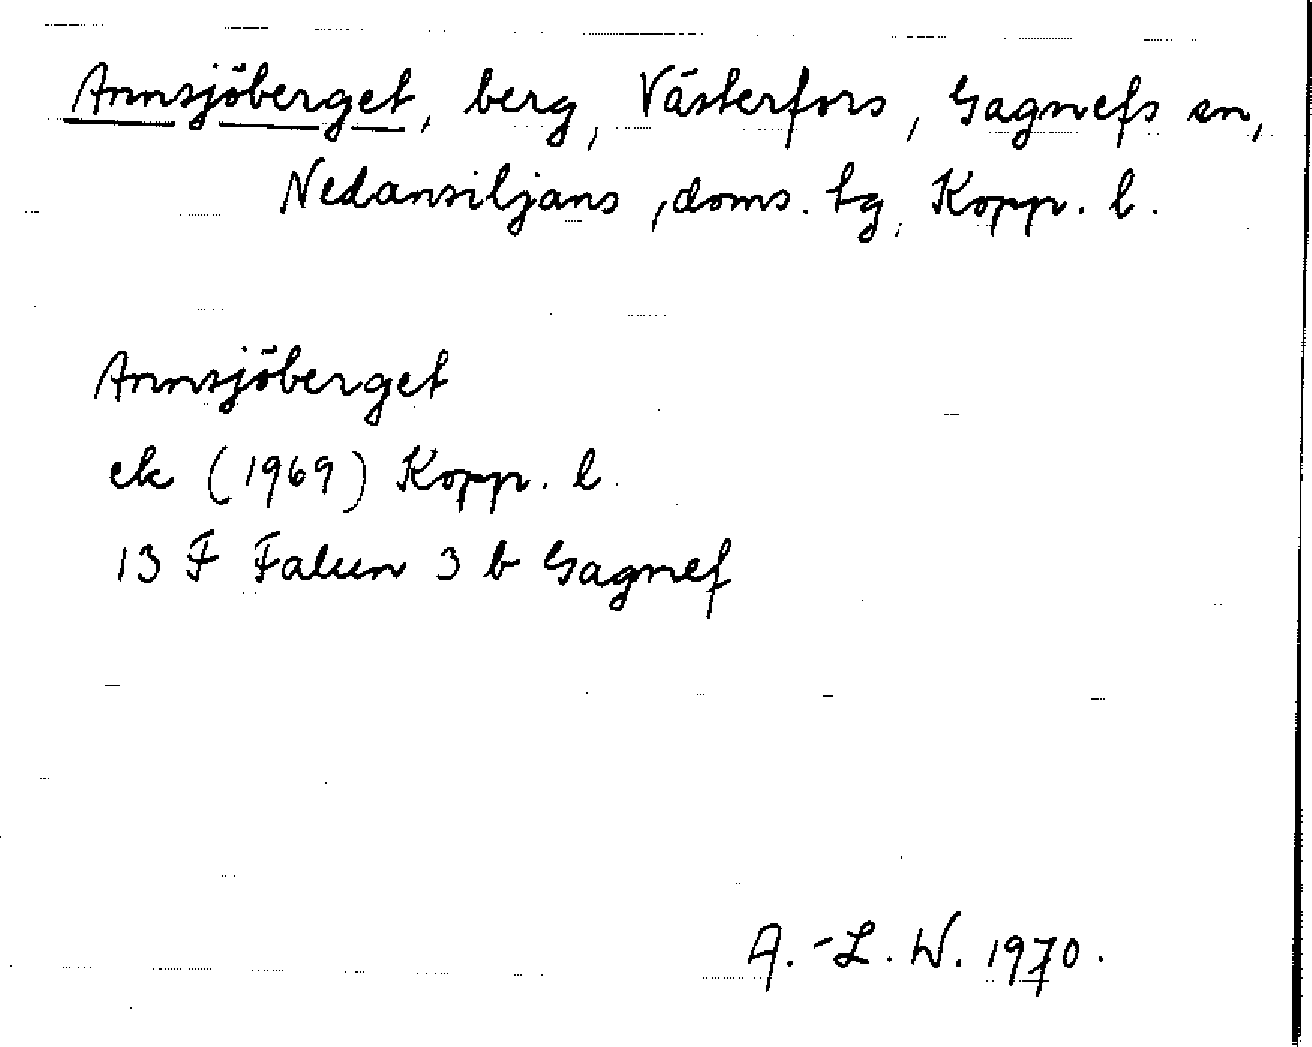 Annsjöberget, berg, Västerfors, Gagnefs sn,
Nedansiljans, doms. tg, Kopp. l.
Annsjöberget
ek (1969) Kopp. l.
13 F Falun 3 b Gagnef
A.-L. W. 1970.